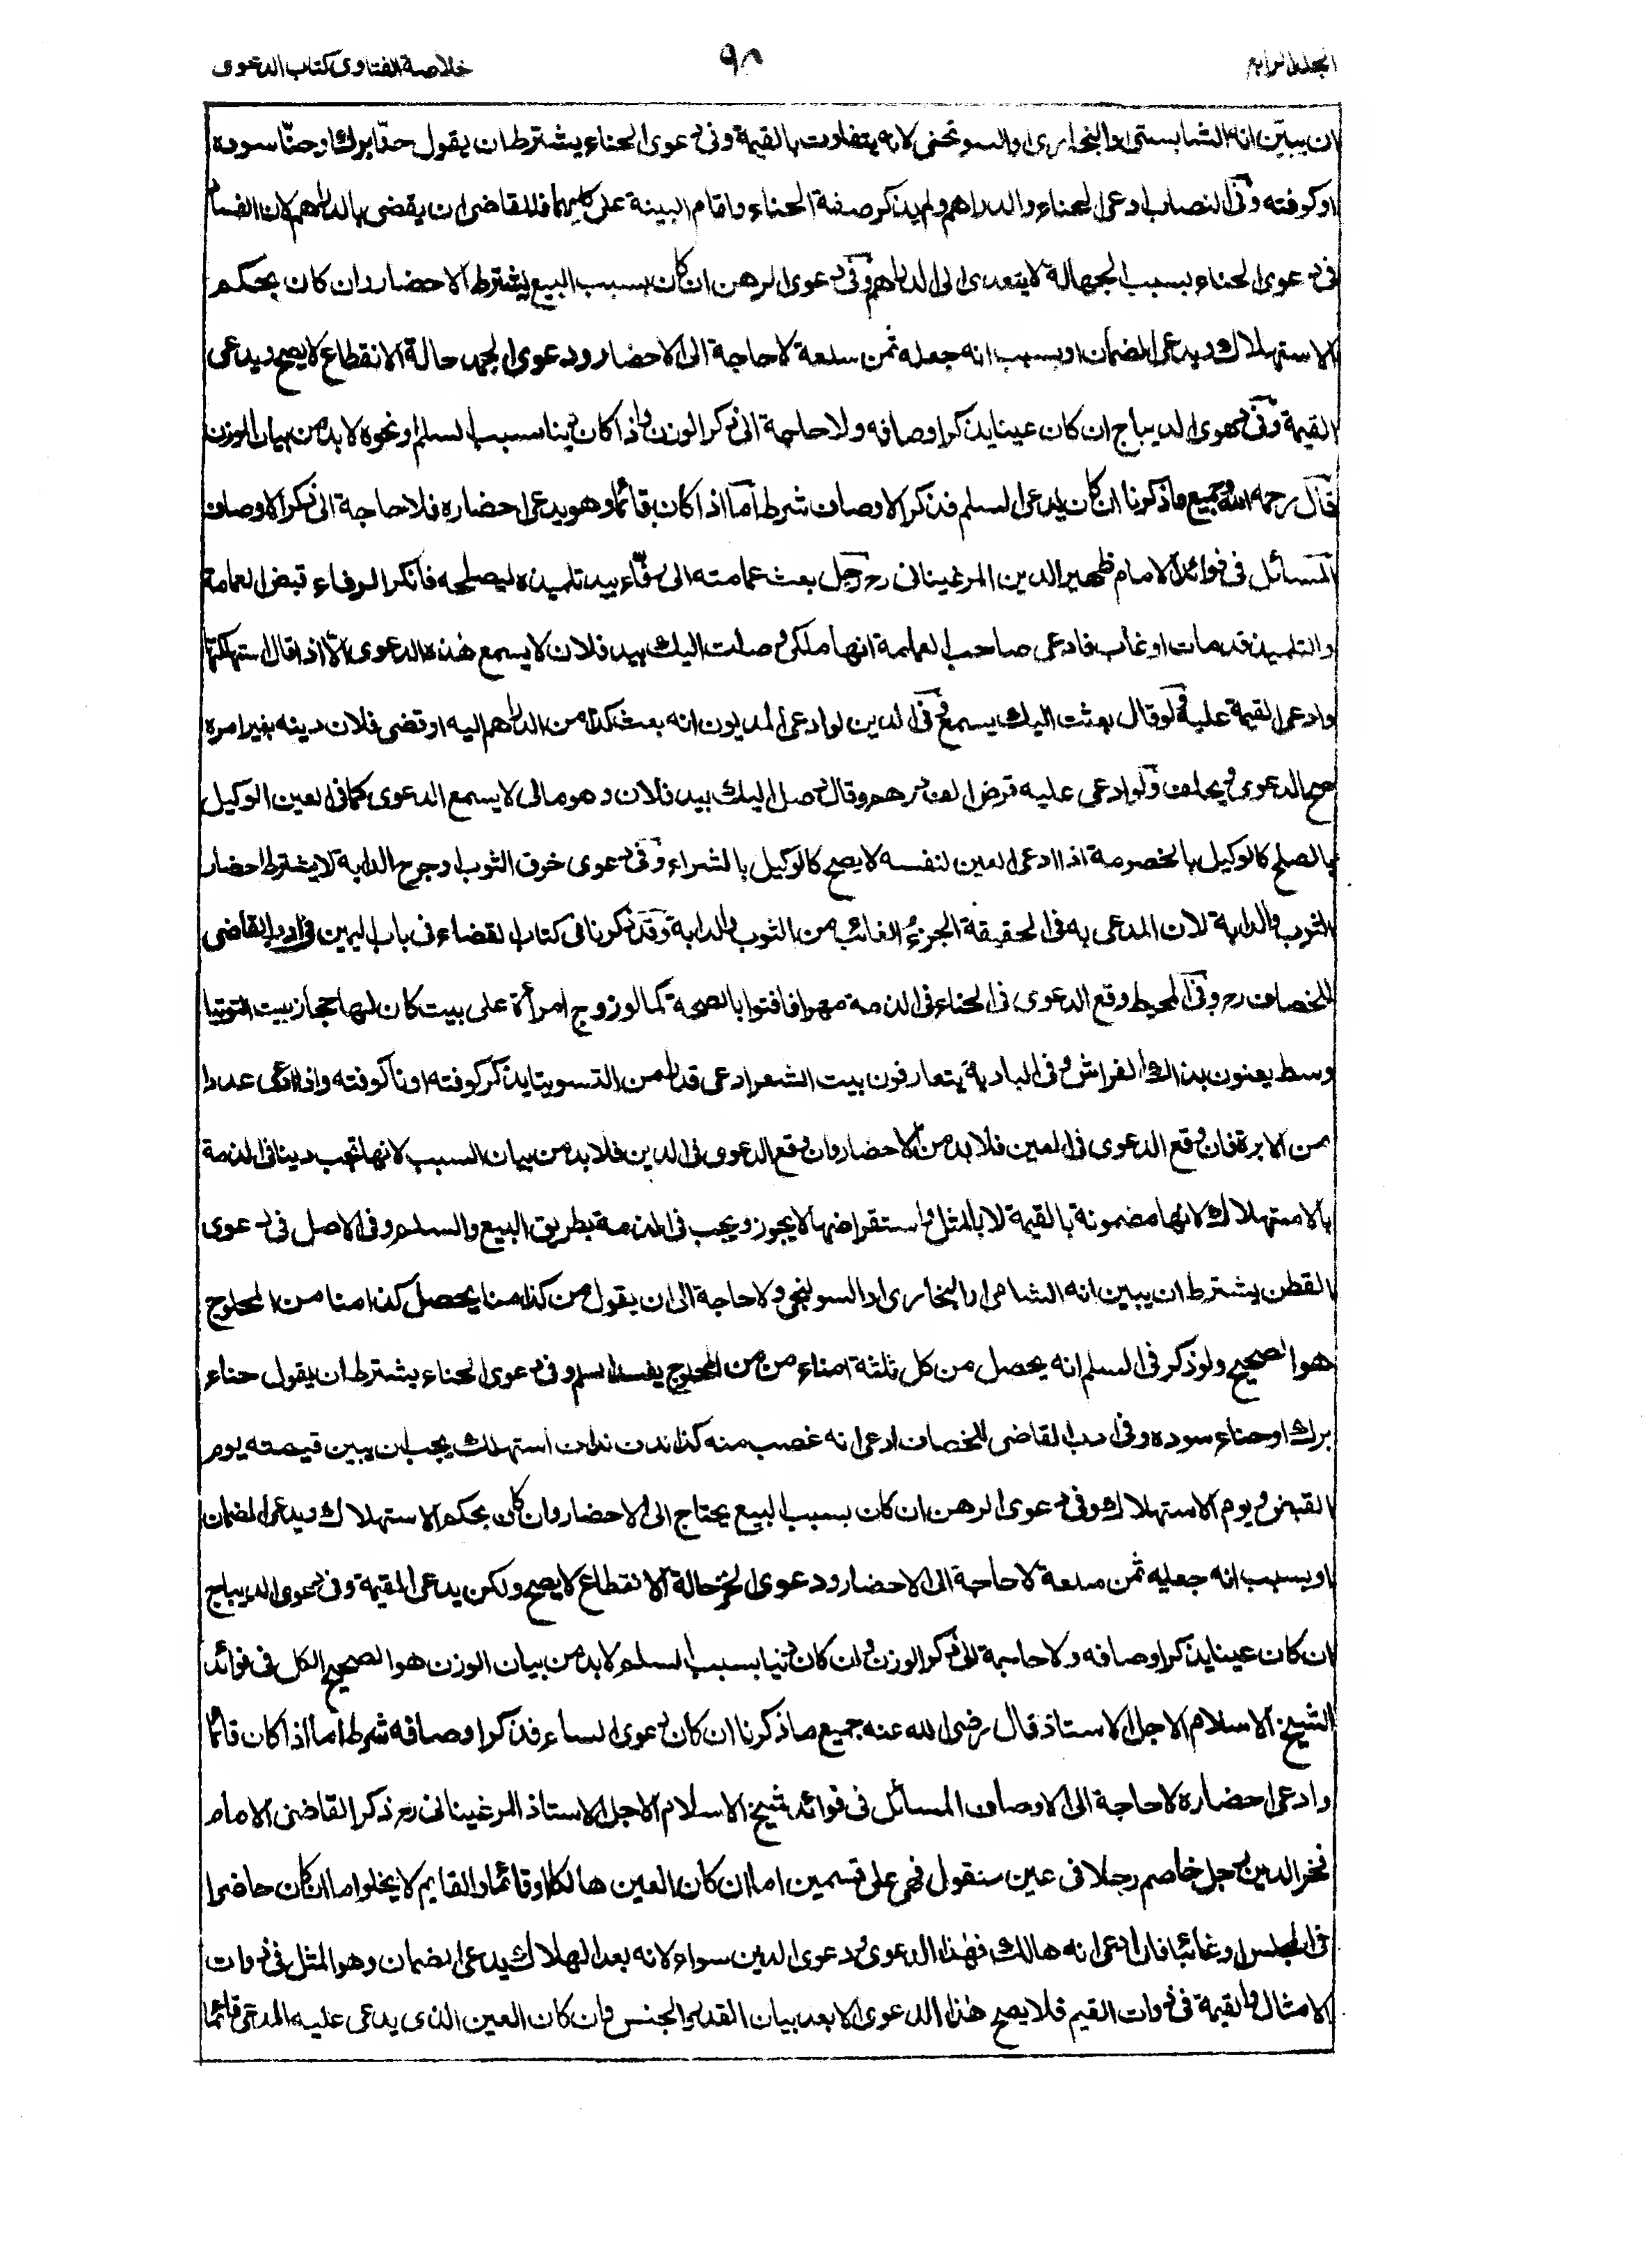 خلاصة الفتاوى كتاب الدعوى ٩٨ المجلد الرابع
ان يبيّن انه الشابستى او البخارى او السونخى لانه يتفاوت بالقيمة وفى دعوى الحناء يشترط ان يقول حنّا برك او حنّا سوده
او كوفته وفى النصاب ادعى الحناء والدراهم ولم يذكر صفة الحناء واقام البينة على كليهما فللقاضى ان يقضى بالدراهم لان الفساد
فى دعوى الحناء بسبب الجهالة لا يتعدى الى الدراهم وفى دعوى الرهن ان كان بسبب البيع يشترط الاحضار وان كان بحكم
الاستهلاك ويدعى الضمان او بسبب انه جعله ثمن سلعة لا حاجة الى الاحضار ودعوى الجمد حالة الانقطاع لا يصح ويدعى
القيمة وفى دعوى الديباج ان كان عينا يذكر اوصافه ولا حاجة الى ذكر الوزن واذا كان دينا بسبب السلم او نحوه لا بد من بيان الوزن
قال رحمه الله جميع ما ذكرنا ان كان يدعى السلم فذكر الاوصاف شرط اما اذا كان قائما وهو يدعى احضاره فلا حاجة الى ذكر الاوصاف
المسائل فى فوائد الامام ظهير الدين المرغينانى رح رجل بعث عمامته الى رفّاء بيد تلميذه ليصلحه فانكر الرفاء قبض العمامة
والتلميذ قد مات او غاب فادعى صاحب العمامة انها ملكى وصلت اليك بيد فلان لا يسمع هذه الدعوى الا اذا قال استهلكتها
وادعى القيمة عليه ولو قال بعثت اليك يسمع وفى الدين لو ادعى المديون انه بعث كذا من الدراهم اليه او قضى فلان دينه بغير امره
صح الدعوى ويحلف ولو ادعى عليه قرض الف درهم وقال وصل اليك بيد فلان وهو مالى لا يسمع الدعوى كما فى العين الوكيل
بالصلح كالوكيل بالخصومة اذا ادعى العين لنفسه لا يصح كالوكيل بالشراء وفى دعوى خرق الثوب او جرح الدابة لا يشترط احضار
الثوب والدابة لان المدعى به فى الحقيقة الجزء الغائب من الثوب والدابة وقد ذكرنا فى كتاب القضاء فى باب اليمين فى ادب القاضى
للخصاف رح وفى المحيط وقع الدعوى فى الحناء فى الذمة مهرا فافتوا بالصحة كما لو زوج امرأة على بيت كان لها جهاز بيت
وسط يعنون بذلك الفراش وفى البادية يتعارفون بيت الشعر ادعى قدرا من التوتيا يذكر كوفته او ناكوفته واذا ادعى عددا
من الابرة فان وقع الدعوى فى العين فلا بد من الاحضار وان وقع الدعوى فى الدين فلا بد من بيان السبب لانها تجب دينا فى الذمة
بالاستهلاك لانها مضمونة بالقيمة لا بالمثل واستقراضها لا يجوز ويجب فى الذمة بطريق البيع والسلم وفى الاصل فى دعوى
القطن يشترط ان يبين انه الشامى او البخارى او السونجى ولا حاجة الى ان يقول من كذا منا يحصل كذا منا من المحلوج
هو الصحيح ولو ذكر فى السلم انه يحصل من كل ثلثة امناء من من المحلوج يفسد السلم وفى دعوى الحناء يشترط ان يقول حناء
برك او حناء سوده وفى ادب القاضى للخصاف ادعى انه غصب منه كذا استهلك يجب ان يبين قيمته يوم
القبض ويوم الاستهلاك وفى دعوى الرهن ان كان بسبب البيع يحتاج الى الاحضار وان كان بحكم الاستهلاك ويدعى الضمان
او بسبب انه جعليه ثمن سلعة لا حاجة الى الاحضار ودعوى حالة الانقطاع لا يصح ولكن يدعى القيمة وفى دعوى الديباج
ان كان عينا يذكر اوصافه ولا حاجة الى ذكر الوزن وان كان دينا بسبب السلم لا بد من بيان الوزن هو الصحيح الكل فى فوائد
الشيخ الاسلام الاجل الاستاذ قال رضى الله عنه جميع ما ذكرنا ان كان دعوى فذكر اوصافه شرط اما اذا كان قائما
وادعى احضاره لا حاجة الى الاوصاف المسائل فى فوائد شيخ الاسلام الاجل الاستاذ المرغينانى رح ذكر القاضى الامام
فخر الدين رجل خاصم رجلا فى عين سنقول فهى على قسمين اما ان كان العين هالكا او قائما والقايم لا يخلو اما ان كان حاضرا
فى المجلس او غائبا فان ادعى انه هالك فهذا الدعوى ودعوى الدين سواء لانه بعد الهلاك يدعى الضمان وهو المثل فى ذوات
الامثال والقيمة فى ذوات القيم فلا يصح هذا الدعوى الا بعد بيان القدر والجنس وان كان العين الذى يدعى عليه المدعى قائما